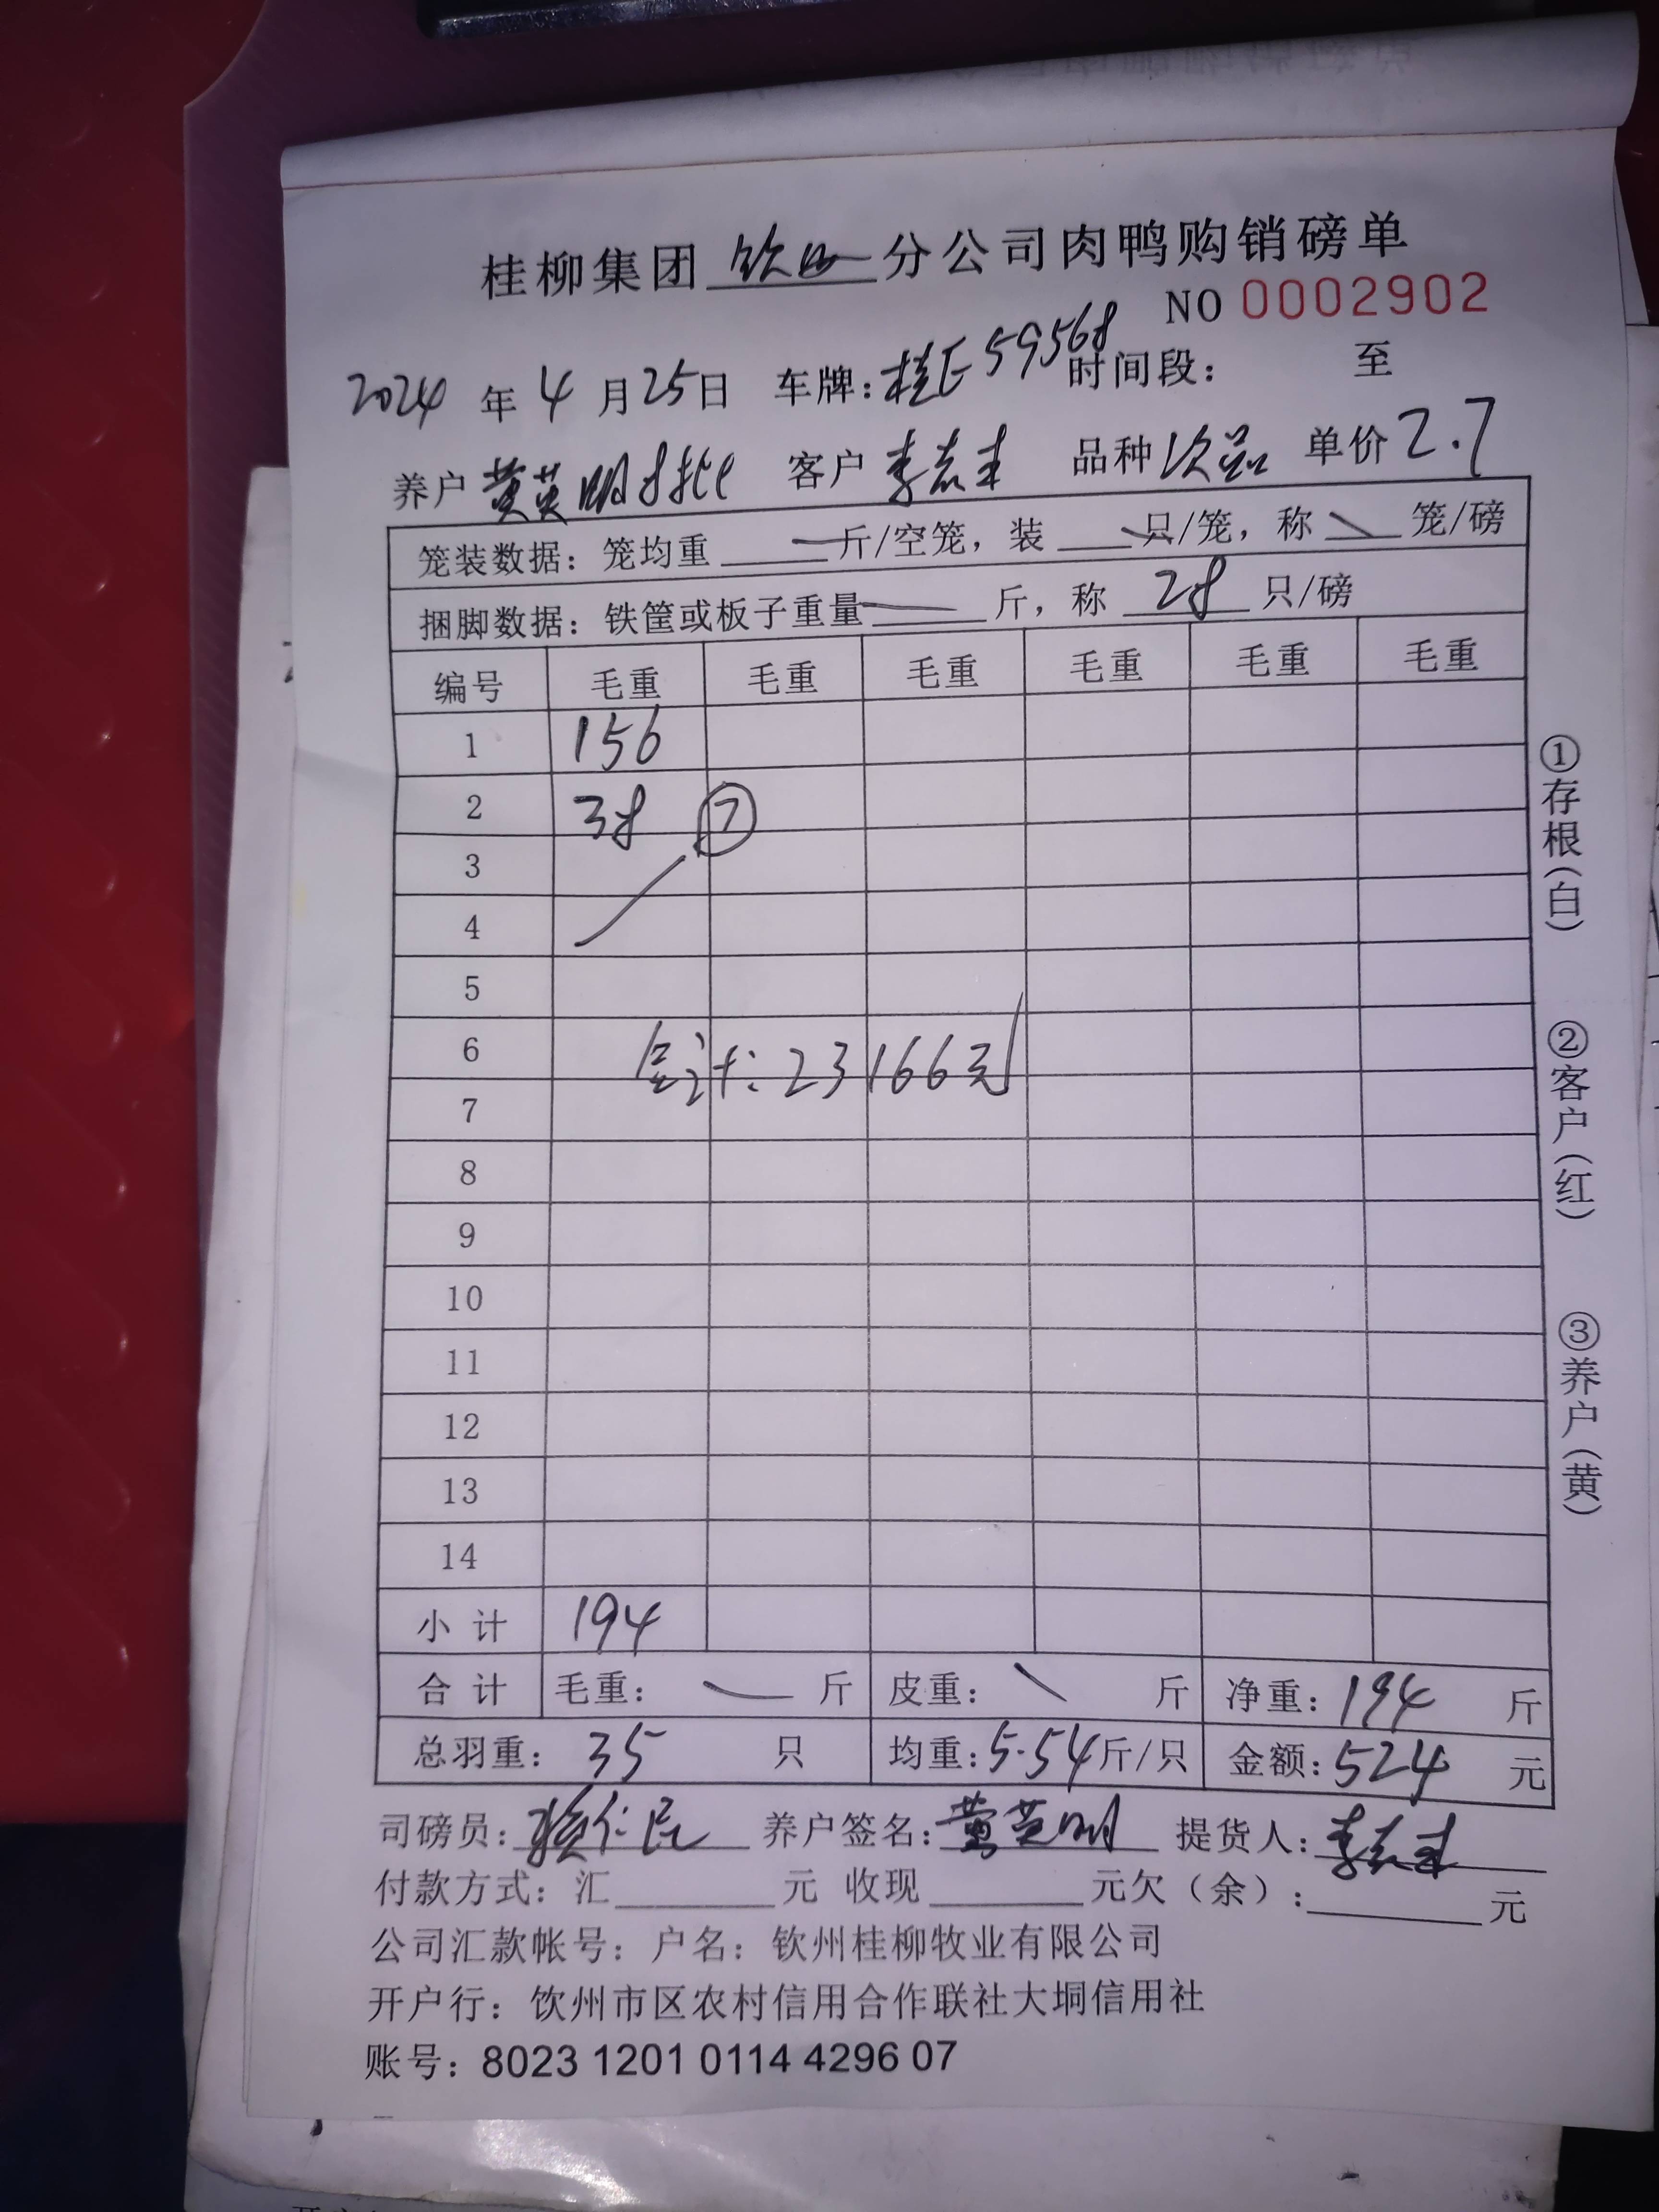 桂柳集团钦州分公司肉鸭购销磅单
NO 0002902
2024年4月25日 车牌：桂E59568 时间段： 至
养户 黄英明8批 客户 李志丰 品种 次品 单价 2.7
笼装数据：笼均重 斤/空笼，装 只/笼，称 笼/磅
捆脚数据：铁筐或板子重量 斤，称 28 只/磅
编号 毛重 毛重 毛重 毛重 毛重 毛重
1 156
2 38 ⑦
3
4
5
6
合计：23166元
7
8
9
10
11
12
13
14
小计 194
合计 毛重： 斤 皮重： 斤 净重：194 斤
总羽重：35 只 均重：5.54斤/只 金额：524 元
司磅员： 仁民 养户签名：黄英明 提货人：李志丰
付款方式：汇 元 收现 元欠（余）： 元
公司汇款帐号：户名：钦州桂柳牧业有限公司
开户行：钦州市区农村信用合作联社大垌信用社
账号：8023 1201 0114 4296 07
①存根（白）
②客户（红）
③养户（黄）